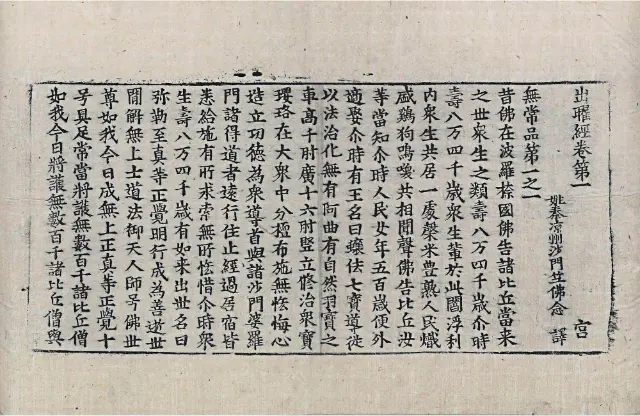 出曜經卷第一
姚秦涼州沙門竺佛念 譯 宮
無常品第一之一
昔佛在波羅㮈國佛告諸比丘當來
之世衆生之類壽八万四千歲尒時
壽八万四千歲衆生輩於此閻浮利
內衆生共居一處馨米豊熟人民熾
盛鷄狗鳴喚共相聞聲佛告比丘汝
等當知尒時人民女年五百歲便外
適娶尒時有王名曰蠰佉七寶導從
以法治化無有阿曲有自然羽寶之
車高千肘廣十六肘竪立修治衆寶
瓔珞在大衆中分檀布施無悋悔心
造立功德為衆導首與諸沙門婆羅
門諸得道者遠行住止經過居宿皆
悉給施有所求索無所悋惜尒時衆
生壽八万四千歲有如来出世名曰
弥勒至真等正覺明行成為善逝世
閒解無上士道法御天人師号佛世
尊如我今日成無上正真等正覺十
号具足常當將護無數百千諸比丘僧
如我今日將護無數百千諸比丘僧與